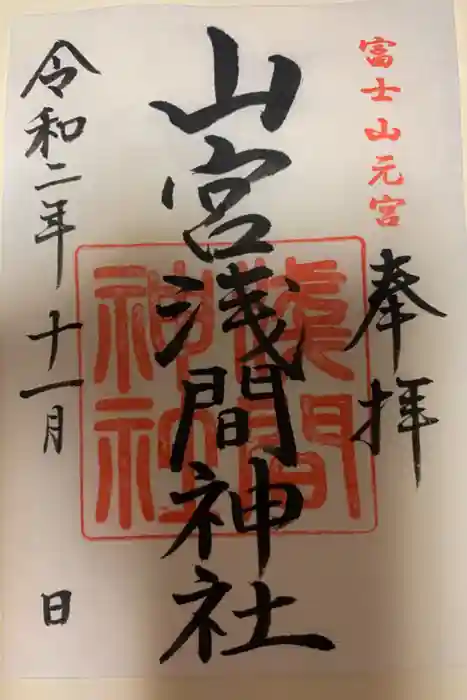 富士山元宮
奉拝
山宮浅間神社
浅間神社
令和二年十一月 日